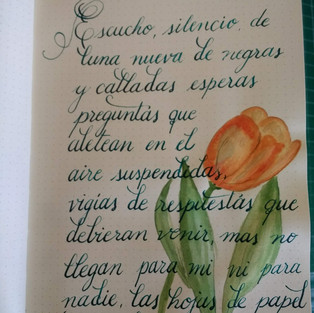 Escucho, silencio, de
luna nueva de negras
y calladas esperas
preguntas que
aletean en el
aire suspendidas,
vigías de respuestas que
debieran venir, mas no
llegan para mi ni para
nadie, las hojas de papel